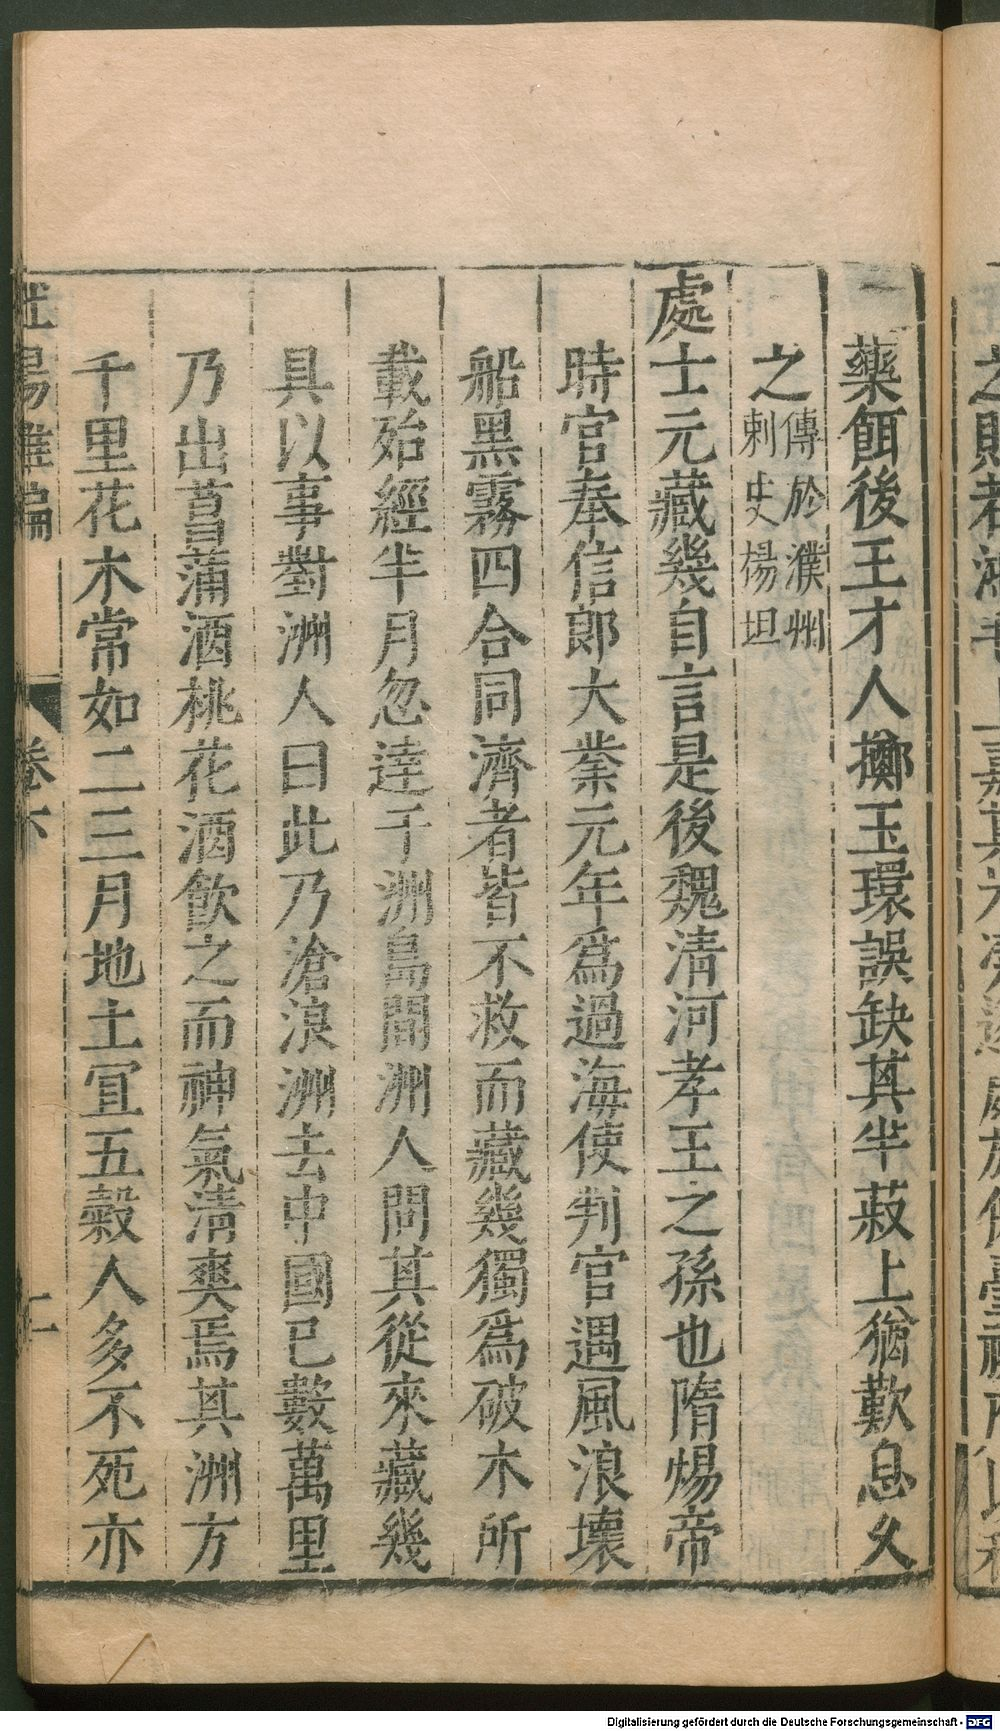 藥餌後王才人擲玉環誤缺其半菽上猶歎息久
之傳於濮州刺史楊坦
處士元藏幾自言是後魏清河孝王之孫也隋煬帝
時官奉信郎大業元年爲過海使判官遇風浪壞
船黑霧四合同濟者皆不救而藏幾獨爲破木所
載殆經半月忽達于洲島間洲人問其從來藏幾
具以事對洲人曰此乃滄浪洲去中國已數萬里
乃出菖蒲酒桃花酒飲之而神氣清爽焉其洲方
千里花木常如二三月地土宜五穀人多不死亦
杜陽雜編
卷下
二
Digitalisierung gefördert durch die Deutsche Forschungsgemeinschaft - DFG